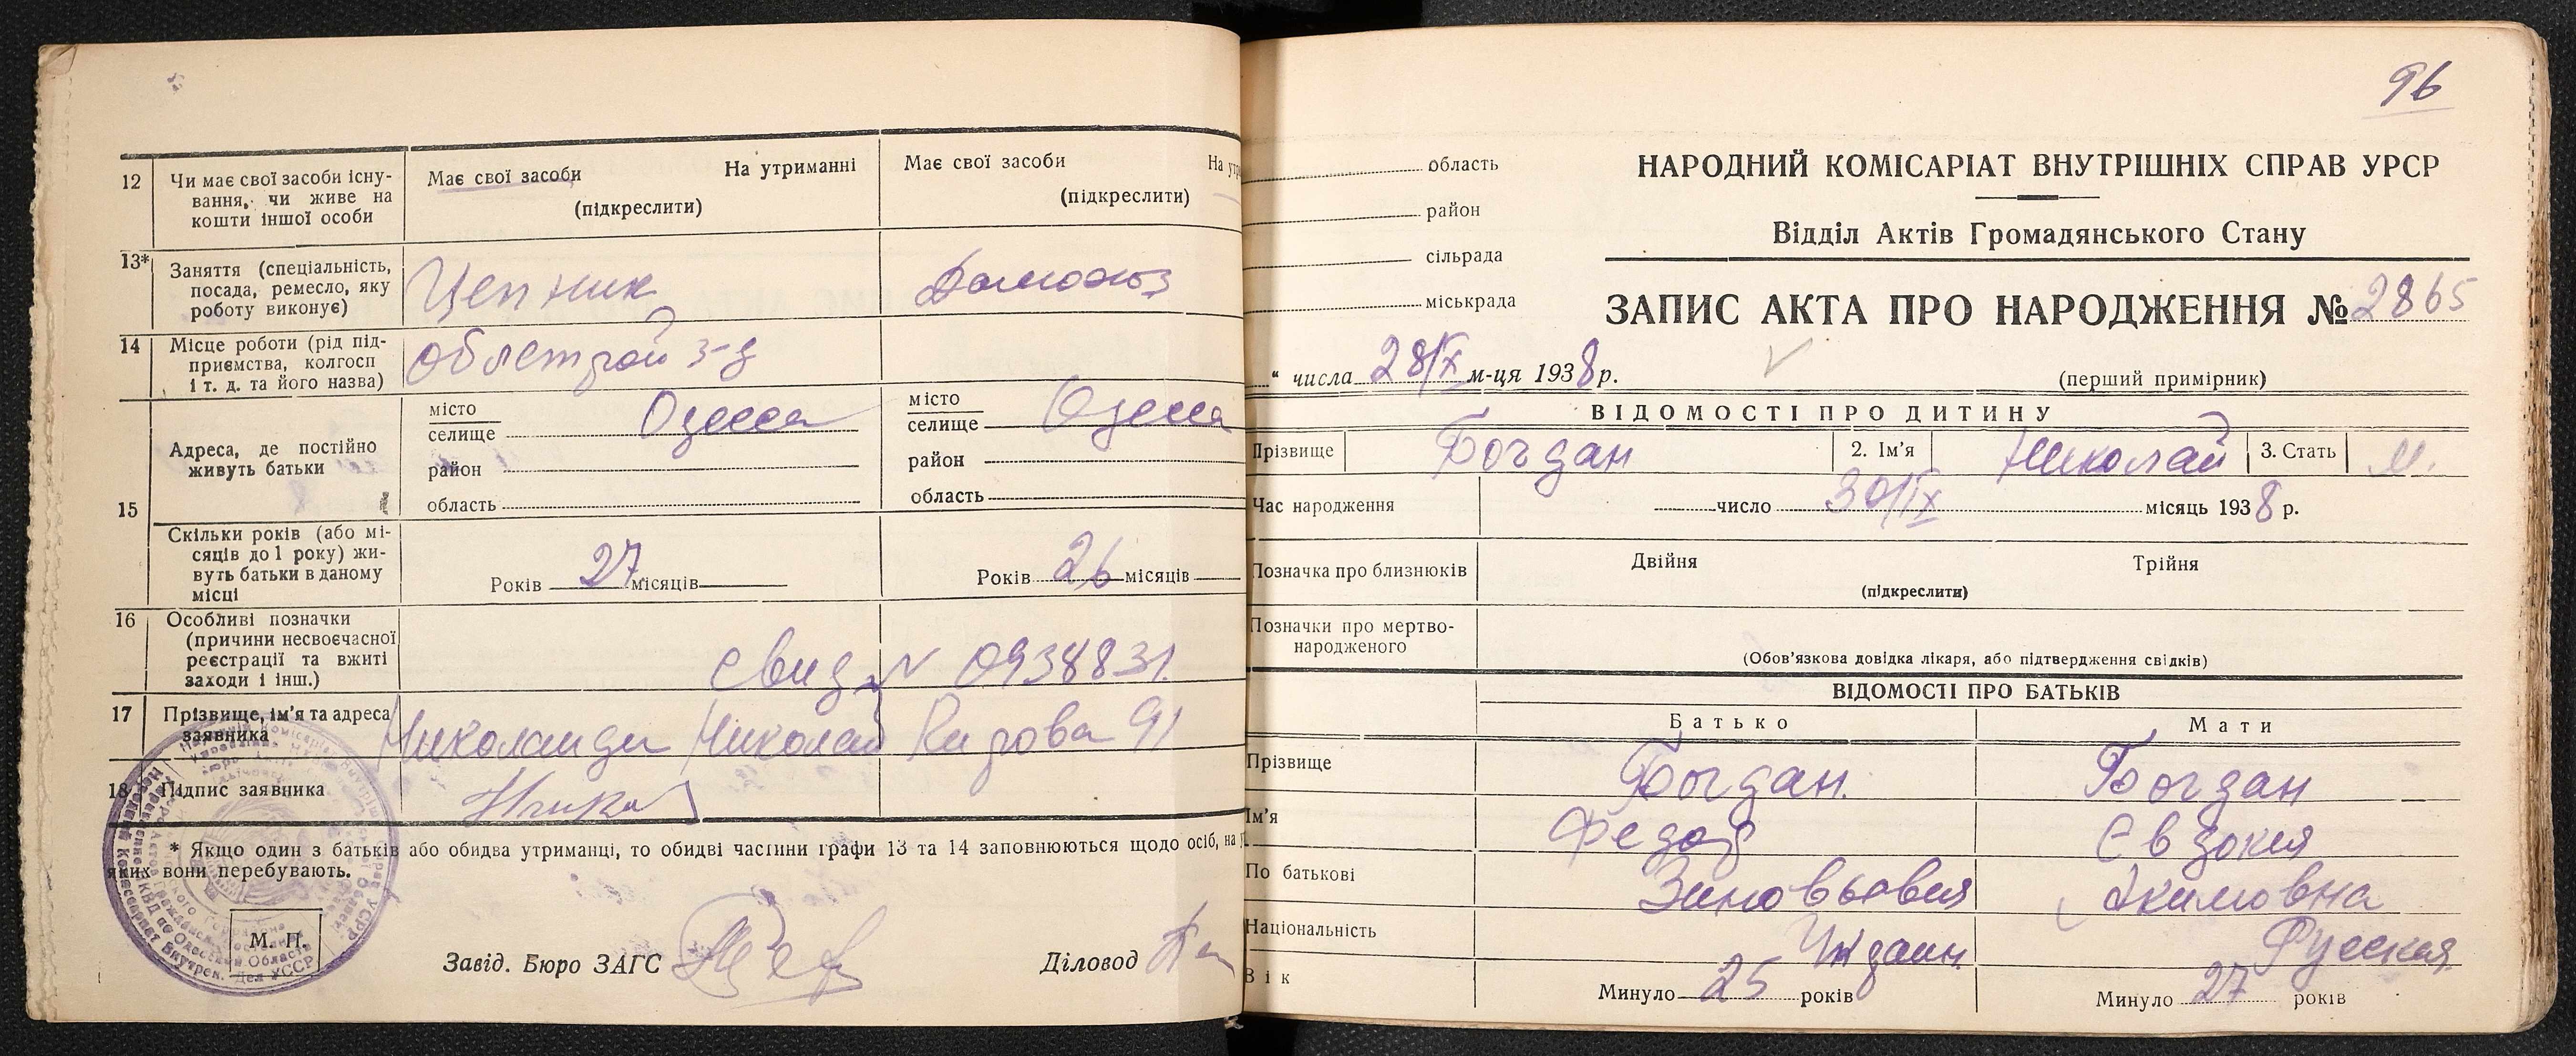 12
Чи має свої засоби існу-
вання, чи живе на
кошти іншої особи
Має свої засоби На утриманні
(підкреслити)
Має свої засоби На утр
(підкреслити)
13*
Заняття (спеціальність,
посада, ремесло, яку
роботу виконує)
Цепник
Домохоз
14
Місце роботи (рід під-
приємства, колгосп
і т. д. та його назва)
Облстрой з-д
15
Адреса, де постійно
живуть батьки
місто
селище Одесса
район
область
місто
селище Одесса
район
область
Скільки років (або мі-
сяців до 1 року) жи-
вуть батьки в даному
місці
Років 27 місяців
Років 26 місяців
16
Особливі позначки
(причини несвоєчасної
реєстрації та вжиті
заходи і інш.)
Свид N 0938831.
17
Прізвище, ім'я та адреса
заявника
Николаиди Николай Кирова 91
18
Підпис заявника
* Якщо один з батьків або обидва утриманці, то обидві частини графи 13 та 14 заповнюються щодо осіб, на у
яких вони перебувають.
М. П.
Завід. Бюро ЗАГС
Діловод
96
область
район
сільрада
міськрада
НАРОДНИЙ КОМІСАРІАТ ВНУТРІШНІХ СПРАВ УРСР
Відділ Актів Громадянського Стану
ЗАПИС АКТА ПРО НАРОДЖЕННЯ № 2865
" числа 28/IX м-ця 1938 р.
(перший примірник)
ВІДОМОСТІ ПРО ДИТИНУ
Прізвище Богдан 2. Ім'я Николай 3. Стать М.
Час народження число 30/IX місяць 1938 р.
Позначка про близнюків Двійня Трійня
(підкреслити)
Позначки про мертво-
народженого
(Обов'язкова довідка лікаря, або підтвердження свідків)
ВІДОМОСТІ ПРО БАТЬКІВ
Батько Мати
Прізвище Богдан. Богдан
Ім'я Федор Євдокия
По батькові Зиновьевич Акимовна
Національність Украин. Русская
Вік Минуло 25 років Минуло 27 років